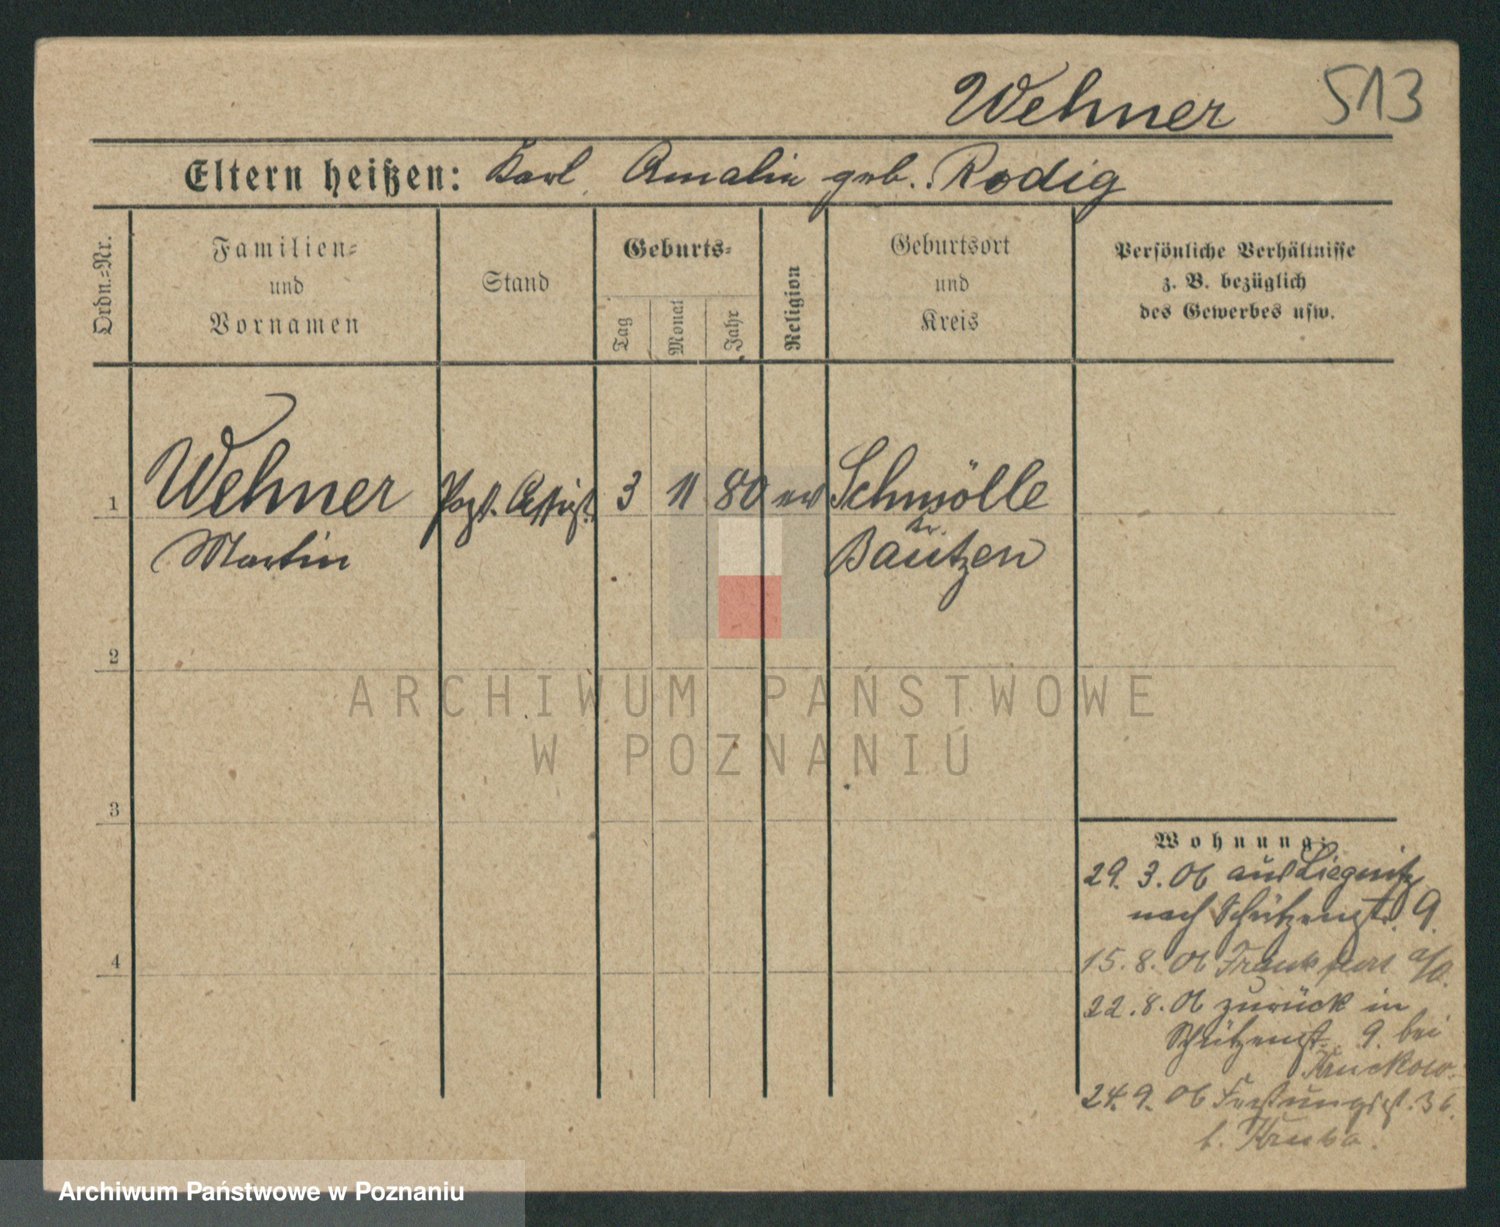 Wehner 513
Eltern heißen: Karl Amalie geb. Rodig
Ordn.=Nr.
Familien=
und
Vornamen
Stand
Geburts=
Tag
Monat
Jahr
Religion
Geburtsort
und
Kreis
Persönliche Verhältnisse
z. B. bezüglich
des Gewerbes usw.
1 Wehner Post. Assist. 3 11 80 ev Schmölle
Kr.
Martin Bautzen
2
3
4
Wohnung:
29. 3. 06 aus Liegnitz
nach Schützenstr. 9.
15. 8. 06 Frankfurt a/O.
22. 8. 06 zurück in
Schützenstr. 9. bei
Kruckow.
24. 9. 06 Festungsst. 3
b. Kruba.
ARCHIWUM PAŃSTWOWE
W POZNANIU
Archiwum Państwowe w Poznaniu